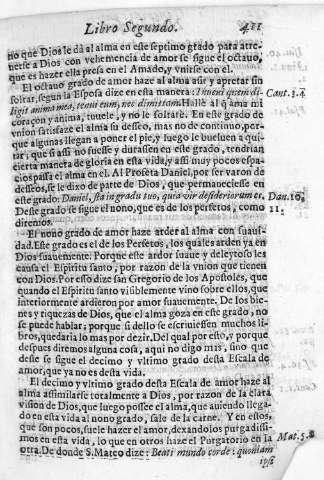 Libro Segundo. 411
no que Dios le dà al alma en este septimo grado para atre-
uerse a Dios con vehemencia de amor se sigue el octauo,
que es hazer ella presa en el Amado, y vnirse con el.
El octauo grado de amor haze al alma asir y apretar sin
soltar, segun la Esposa dize en esta manera: Inueni quem di- Cant. 3. 4
ligit anima mea, tenui eum, nec dimittam. Hallè al q̃ ama mi
coraçon y anima, tuuele, y no le soltarè. En este grado de
vnion satisfaze el alma su deseo, mas no de continuo, por-
que algunas llegan a poner el pie, y luego le bueluen a qui-
tar, que si assi no fuesse y durassen en este grado, tendrian
cierta manera de gloria en esta vida, y assi muy pocos espa-
cios passa el alma en el. Al Profeta Daniel, por ser varon de
desseos, se le dixo de parte de Dios, que permaneciesse en
este grado: Daniel, sta in gradu tuo, quia vir desideriorum es, Dan. 10,
Deste grado se sigue el nono, que es de los perfetos, como 11.
diremos.
El nono grado de amor haze arder al alma con suaui-
dad. Este grado es el de los Perfetos, los quales arden ya en
Dios suauemente. Porque este ardor suaue y deleytoso les
causa el Espiritu santo, por razon de la vnion que tienen
con Dios. Por esso dize san Gregorio de los Apostoles, que
quando el Espiritu santo visiblemente vino sobre ellos, que
interiormente ardieron por amor suauemente. De los bie-
nes y riquezas de Dios, que el alma goza en este grado, no
se puede hablar; porque si dello se escriuiessen muchos li-
bros, quedaria lo mas por dezir. Del qual por esto, y porque
despues diremos alguna cosa, aqui no digo mas, sino que
deste se sigue el decimo y vltimo grado desta Escala de
amor, que ya no es desta vida.
El decimo y vltimo grado desta Escala de amor haze al
alma assimilarse totalmente a Dios, por razon de la clara
vision de Dios, que luego possee el alma, que auiendo llega-
do en esta vida al nono grado, sale de la carne. Y en estos,
que son pocos, suele hazer el amor, dexandolos purgadissi-
mos en esta vida, lo que en otros haze el Purgatorio en la Mat. 5. 8
otra. De donde S. Mateo dize: Beati mundo corde: quoniam
ipsi